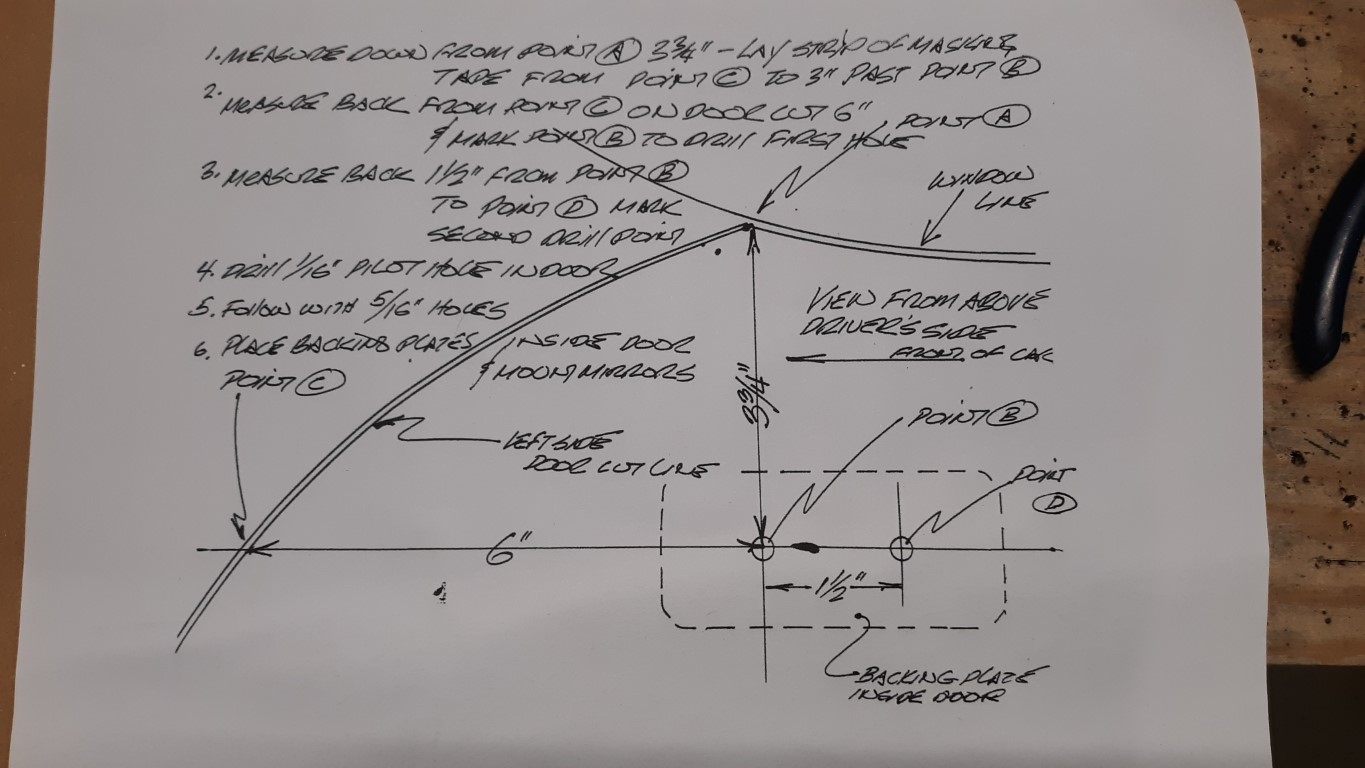 1. MEASURE DOWN FROM POINT Ⓐ 3 3/4" - LAY STRIP OF MASKING
TAPE FROM POINT Ⓒ TO 3" PAST POINT Ⓑ
2. MEASURE BACK FROM POINT Ⓒ ON DOOR CUT 6"
& MARK POINT Ⓑ TO DRILL FIRST HOLE
POINT Ⓐ
3. MEASURE BACK 1 1/2" FROM POINT Ⓑ
TO POINT Ⓓ MARK
SECOND DRILL POINT
WINDOW
LINE
4. DRILL 1/16" PILOT HOLE IN DOOR
5. FOLLOW WITH 5/16" HOLES
6. PLACE BACKING PLATES INSIDE DOOR
& MOUNT MIRRORS
VIEW FROM ABOVE
DRIVER'S SIDE
FRONT OF CAR
POINT Ⓒ
3 3/4"
POINT Ⓑ
LEFT SIDE
DOOR CUT LINE
POINT
Ⓓ
6"
1 1/2"
BACKING PLATE
INSIDE DOOR